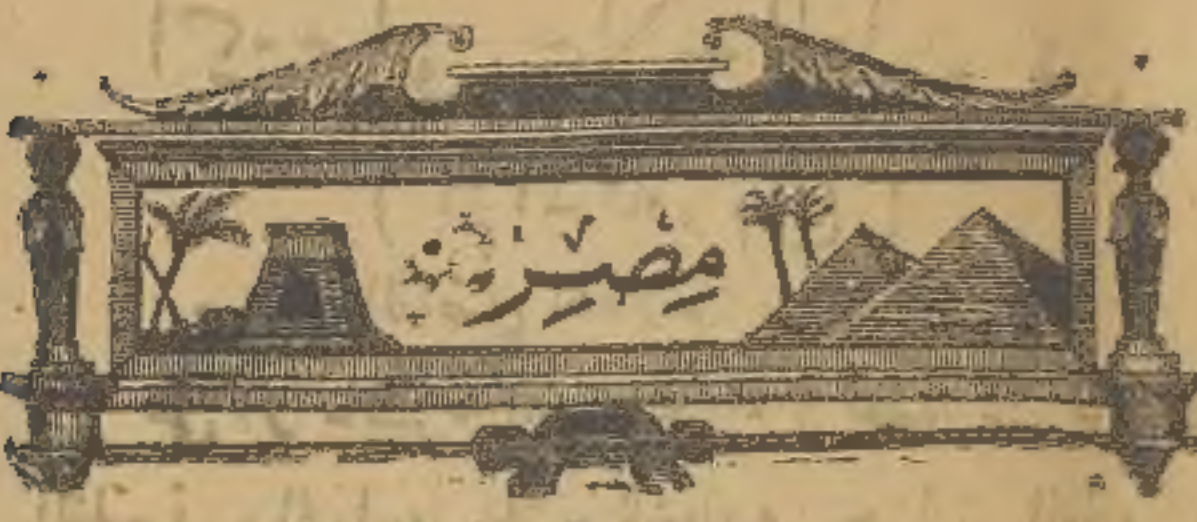 مِصْر